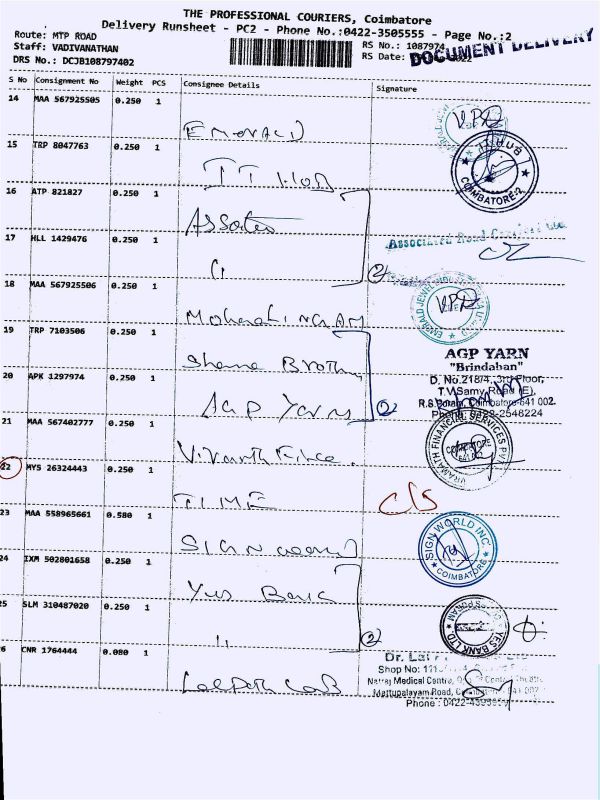 THE PROFESSIONAL COURIERS, Coimbatore
Delivery Runsheet - PC2 - Phone No.:0422-3505555 - Page No.:2
Route: MTP ROAD
Staff: VADIVANATHAN
DRS No.: DCJB108797402
RS No.: 1087974
RS Date:
DOCUMENT DELIVERY
S No Consignment No Weight PCS Consignee Details Signature
14 MAA 567925505 0.250 1
EMERALD
VPR
15 TRP 8047763 0.250 1
COIMBATORE-2
16 ATP 821827 0.250 1
17 HLL 1429476 0.250 1
Associated Road Carriers Ltd
2
18 MAA 567925506 0.250 1
VPR
19 TRP 7103506 0.250 1
AGP YARN
"Brindaban"
20 APK 1297974 0.250 1
AGP Yarns
2
D. No.218/4, 3rd Floor,
T.V.Samy Road (E),
R.S.Puram, Coimbatore-641 002.
Phone: 0422-2548224
21 MAA 567402777 0.250 1
FINANCIAL SERVICES
COIMBATORE
22 MYS 26324443 0.250 1
TIME
C/S
23 MAA 558965661 0.580 1
SIGN WORLD
SIGN WORLD INC.
COIMBATORE
24 IXM 502801658 0.250 1
Yes Bank
25 SLM 310487020 0.250 1
"
2
YES BANK LTD
26 CNR 1764444 0.080 1
Lalpath LAB
Shop No:
Natraj Medical Centre,
Mettupalayam Road,
Phone : 0422-